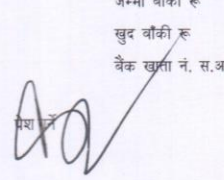 जम्मा बाँकी रू
खुद बाँकी रू
बैंक खाता नं. स.अ
पेश गर्ने